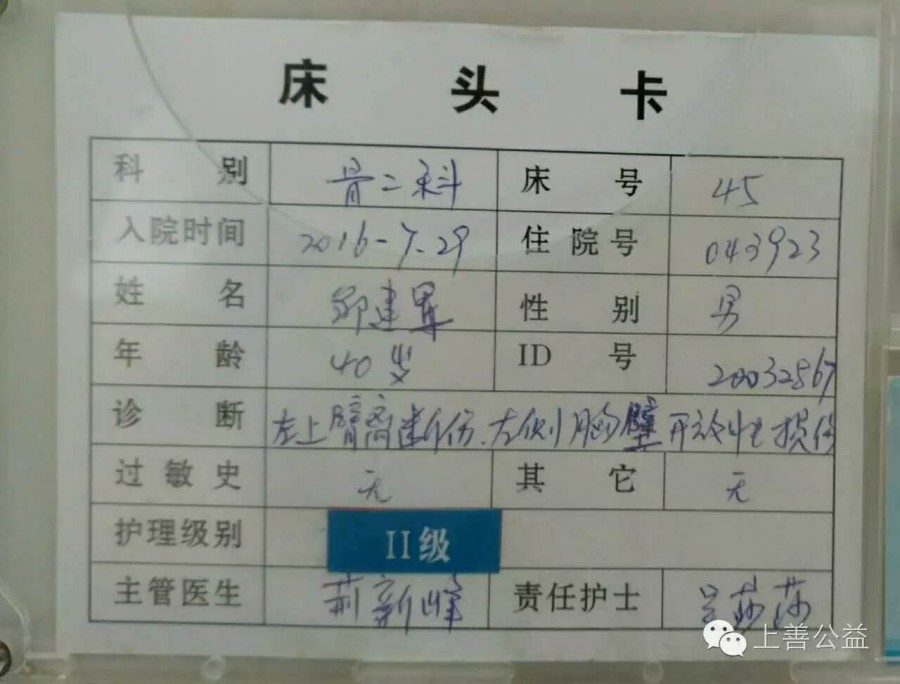 床头卡
科别 骨二科 床号 45
入院时间 2016-7-29 住院号 043923
姓名 邹建军 性别 男
年龄 40岁 ID号 20032867
诊断 左上臂离断伤、左侧胸壁开放性损伤
过敏史 无 其它 无
护理级别 II级
主管医生 荆新峰 责任护士 吴莎莎
上善公益